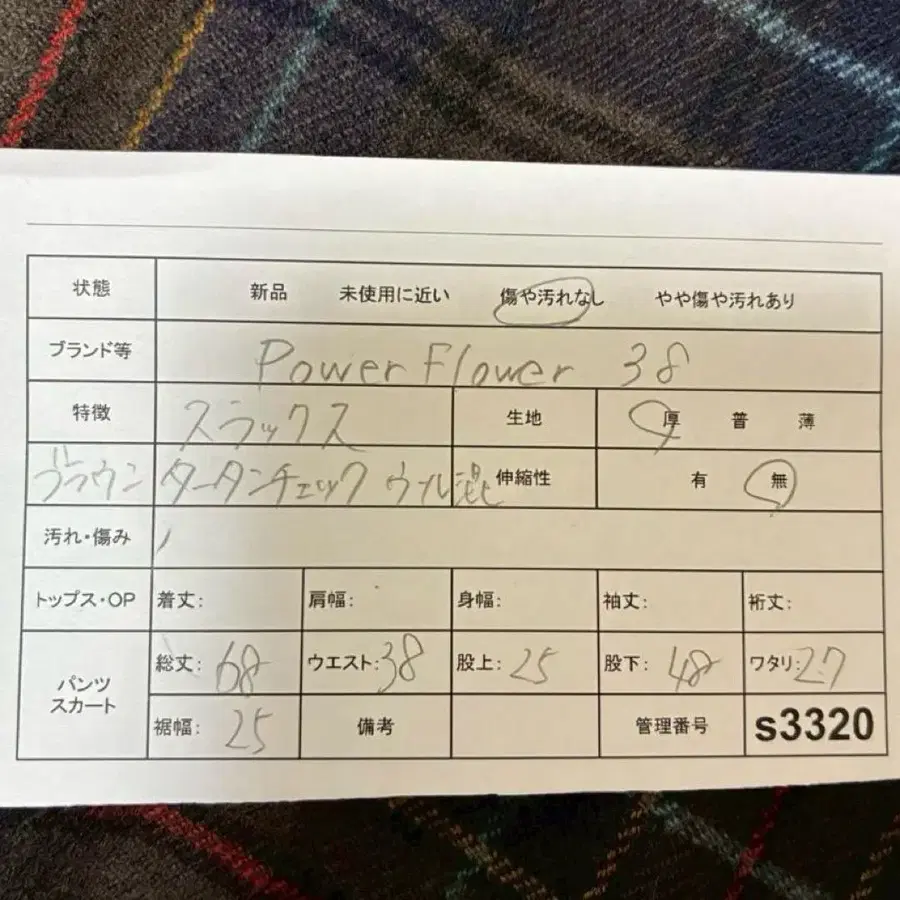 状態 新品 未使用に近い 傷や汚れなし やや傷や汚れあり
ブランド等 Power Flower 38
特徴 スラックス 生地 厚 普 薄
ブラウン タータンチェック ウール混 伸縮性 有 無
汚れ・傷み
トップス・OP 着丈: 肩幅: 身幅: 袖丈: 裄丈:
パンツ スカート 総丈: 68 ウエスト: 38 股上: 25 股下: 48 ワタリ: 27
裾幅: 25 備考 管理番号 s3320